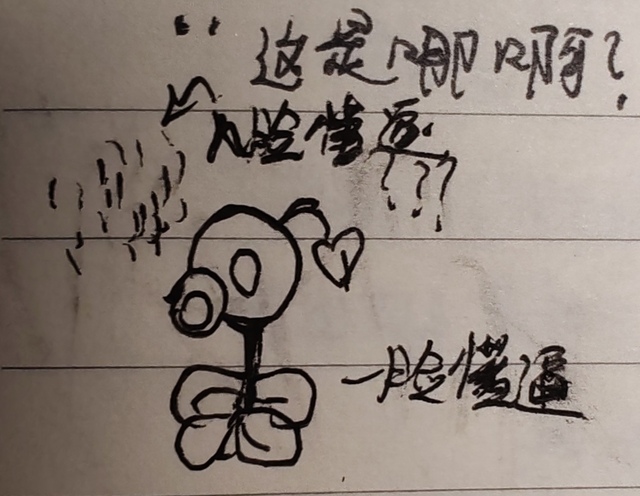 这是哪啊?
几脸懵逼
???
一脸懵逼